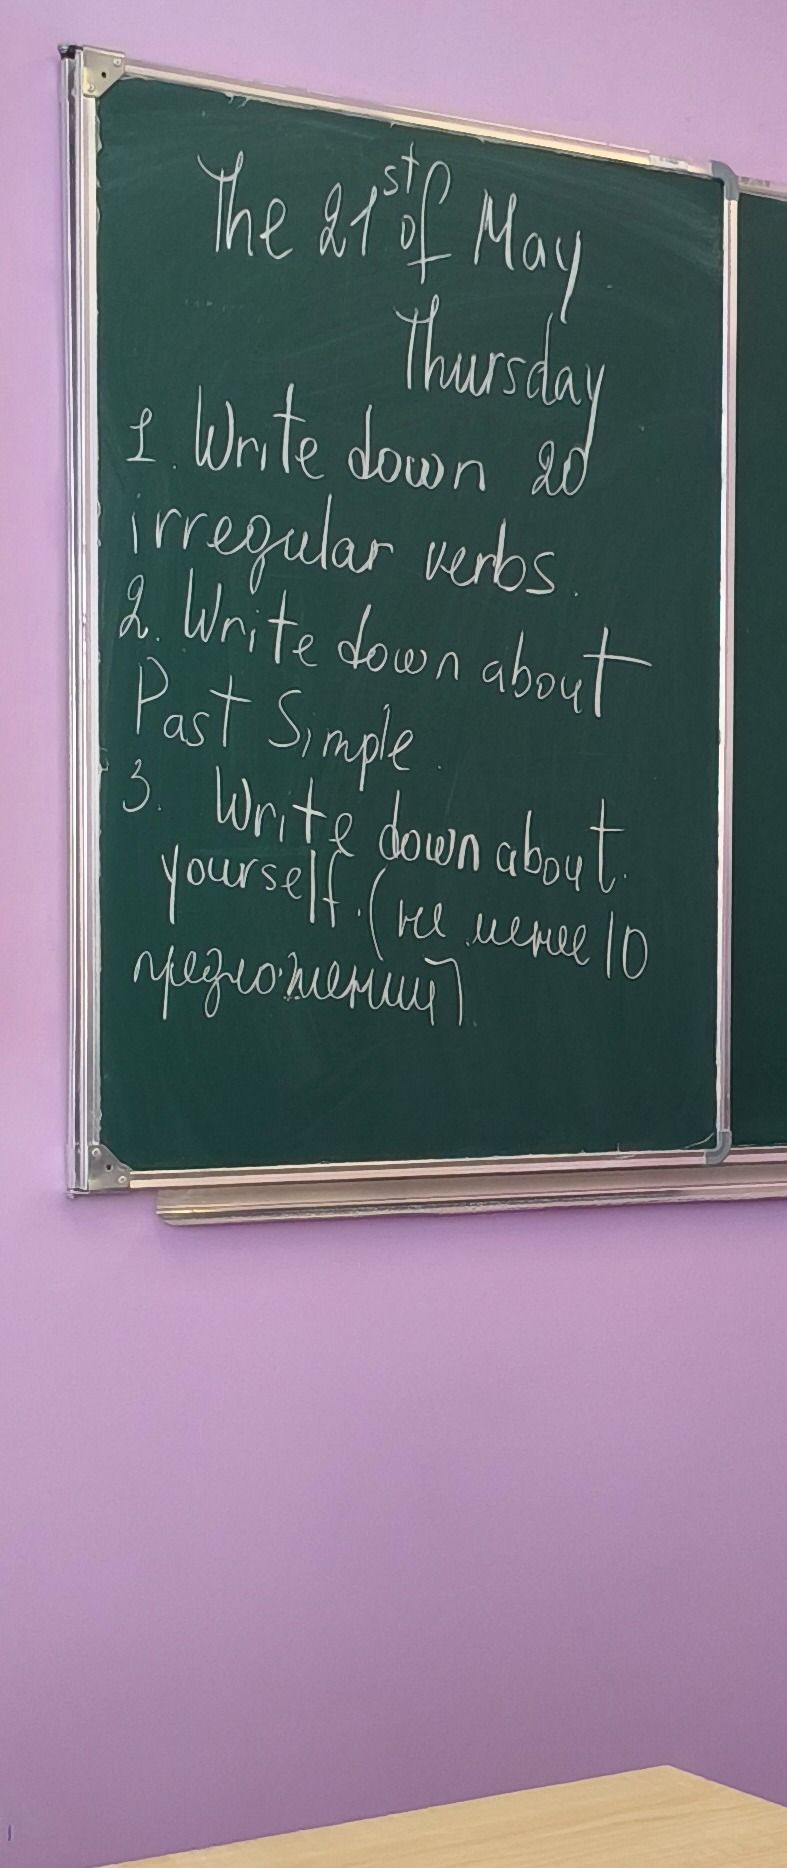 The 21st of May
Thursday
1. Write down 20
irregular verbs.
2. Write down about
Past Simple.
3. Write down about
yourself. (не менее 10
предложений)